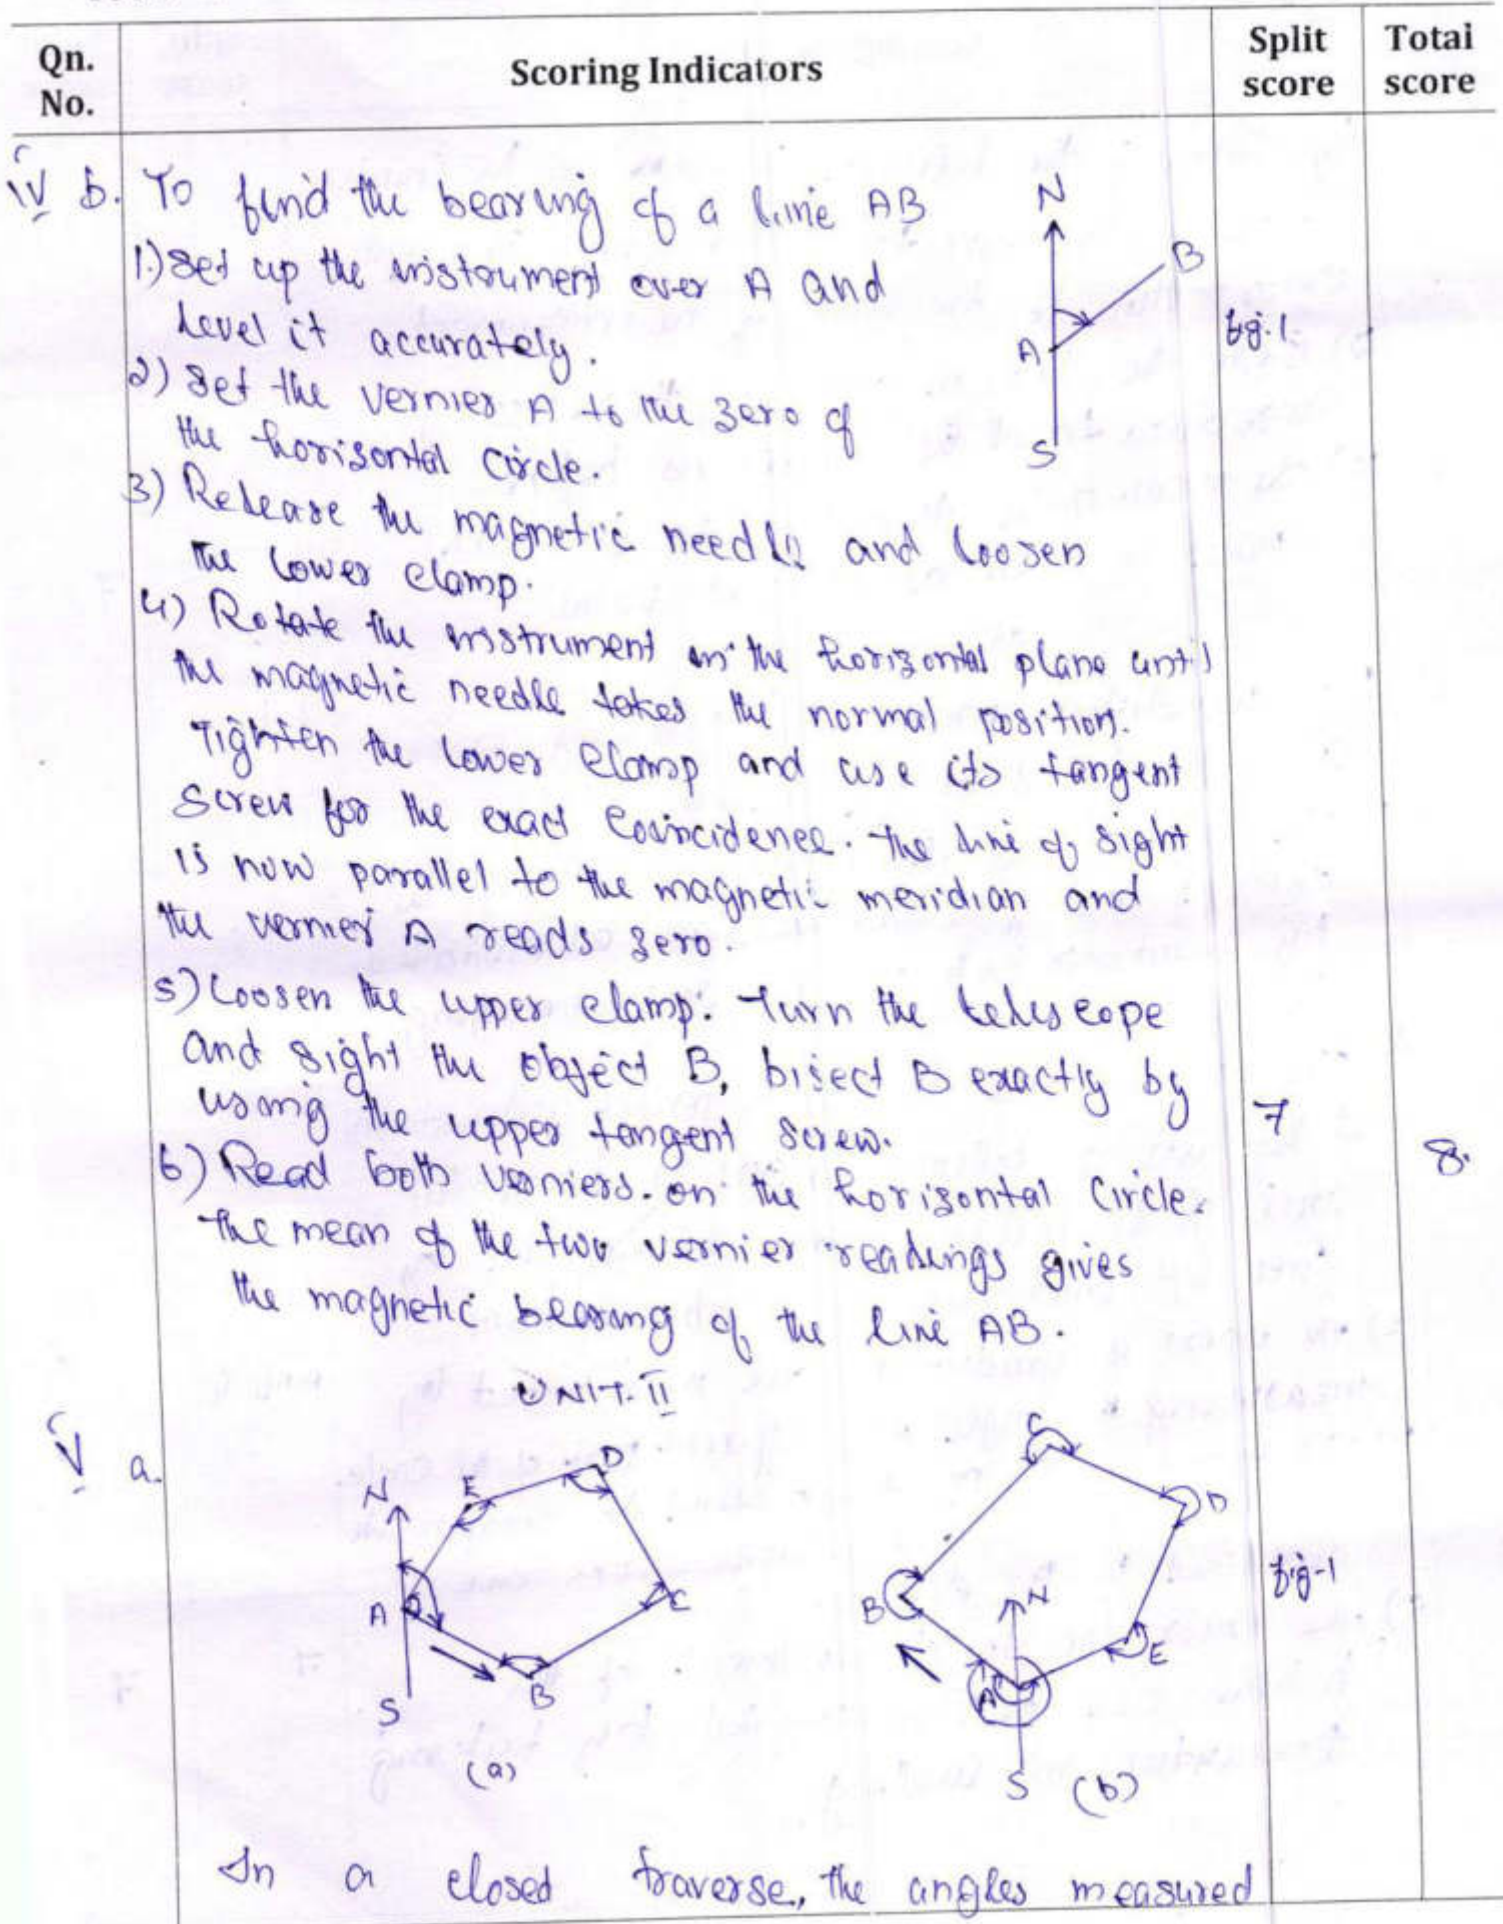 Qn. No.
Scoring Indicators
Split score
Total score
IV b. To find the bearing of a line AB
1.) Set up the instrument over A and
level it accurately.
2) Set the vernier A to the zero of
the horisontal circle.
3) Release the magnetic needle and loosen
the lower clamp.
4) Rotate the instrument in the horizontal plane until
the magnetic needle takes the normal position.
Tighten the lower clamp and use its tangent
screw for the exact coincidence. The line of sight
is now parallel to the magnetic meridian and
the vernier A reads zero.
5) Loosen the upper clamp. Turn the telescope
and sight the object B, bisect B exactly by
using the upper tangent screw.
6) Read both verniers on the horizontal circle.
The mean of the two vernier readings gives
the magnetic bearing of the line AB.
N
B
A
S
fig.1
7
8.
UNIT-II
V a.
N
E
D
A
C
B
S
(a)
C
D
B
N
A
E
S
(b)
fig-1
In a closed traverse, the angles measured